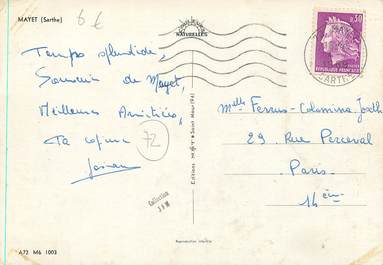 MAYET (Sarthe)
6 €
Temps splendide,
Souvenir de Mayet,
Meilleures Amitiés,
Ta copine
72
NATURELLES
0,30
REPUBLIQUE FRANÇAISE
SARTHE
Melle Ferrus-Colomina
29 Rue Perceval
Paris
14 èm
Editions
Saint Maur (94)
Collection
Reproduction interdite
A72 M6 1003